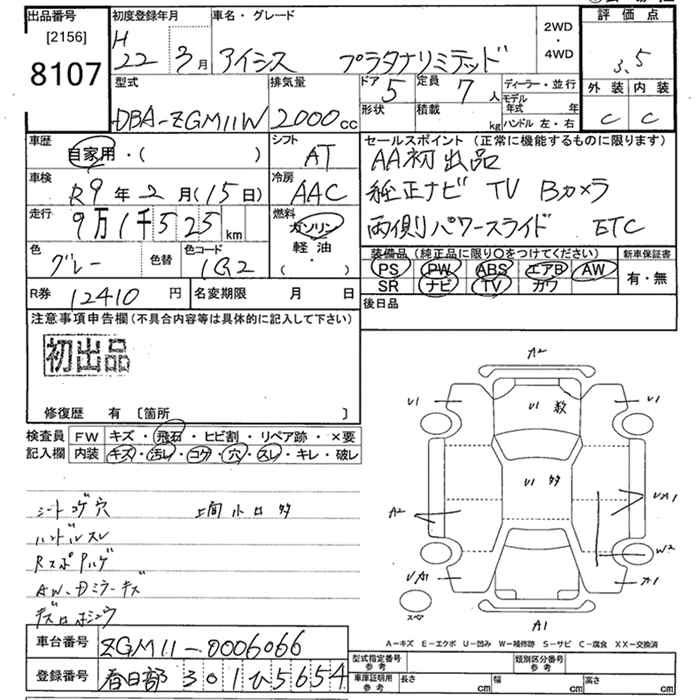 出品番号
[2156]
8107
初度登録年月
H 22年 3月
車名・グレード
アイシス プラタナリミテッド
2WD
・
4WD
評価点
3.5
外装 内装
C C
型式
DBA-ZGM11W
排気量
2000cc
ドア 5
定員 7人
形状
積載 kg
ディーラー・並行
モデル年式 年
ハンドル 左・右
車歴
自家用・( )
シフト
AT
車検
R9年2月(15日)
冷房
AAC
走行
9万1千525km
燃料
ガソリン
軽油
( ・ )
色
グレー
色替
色コード
1G2
R券 12410円
名変期限 月 日
セールスポイント (正常に機能するものに限ります)
AA初出品
純正ナビ TV Bカメラ
両側パワースライド ETC
装備品(純正品に限り○をつけてください)
新車保証書
PS PW ABS エアB AW
SR ナビ TV カワ
有・無
後日品
注意事項申告欄(不具合内容等は具体的に記入して下さい)
初出品
修復歴 有 [箇所 ]
検査員
記入欄
FW キズ・飛石・ヒビ割・リペア跡・×要
内装 キズ・汚レ・コゲ・穴・スレ・キレ・破レ
シートコゲ穴 上間小キロ多
ハンドルスレ
RスポPハゲ
AW、Dミラーキズ
A2
U1
U1
U1
U1 多
A2
UA1
W2
UA1
A1
スペア
A1
A-キズ E-エクボ U-凹み W-補修跡 S-サビ C-腐食 XX-交換済
車台番号 ZGM11-0006066
登録番号 春日部 301 ひ 5654
型式指定番号 参考
類別区分番号 参考
車庫証明用 参考 長さ cm 幅 cm 高さ cm